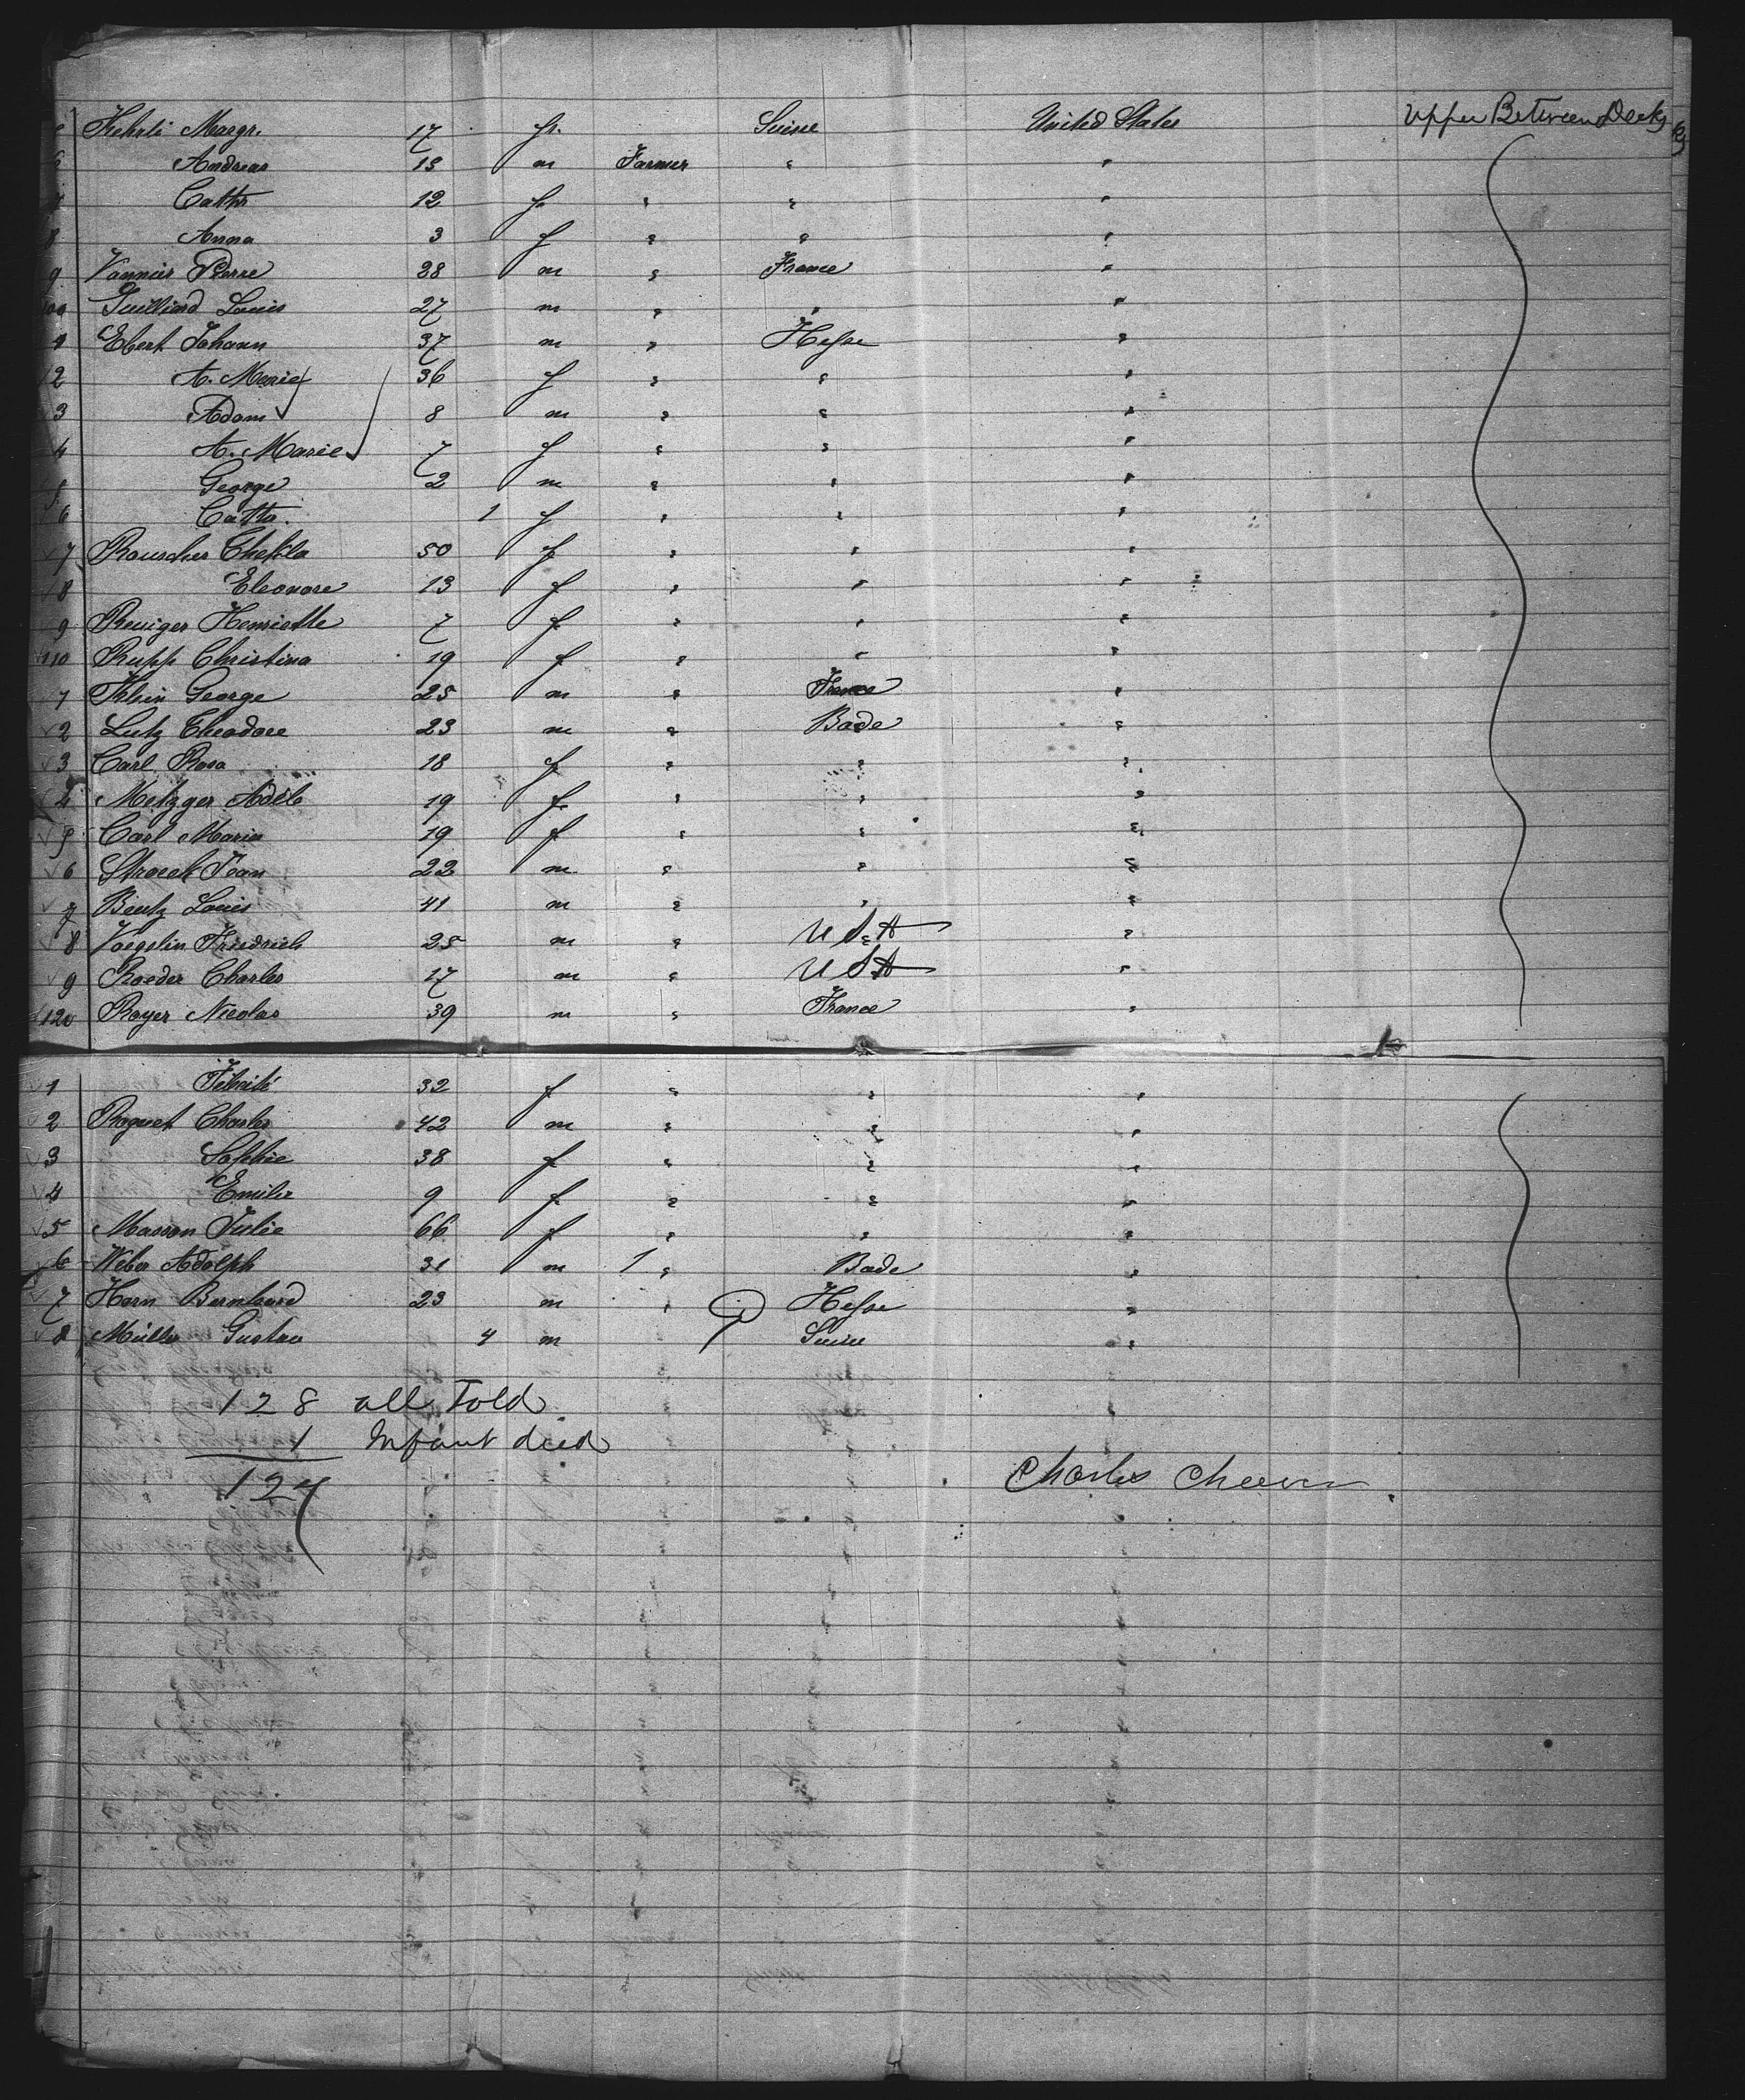 Kehrli Margr. 17 f. Suisse United States Upper Between Decks
Andreas 15 m Farmer " "
Cath 12 f " " "
8 Anna 3 f " " "
9 Vannier Pierre 28 m " France "
100 Guilliard Louis 27 m " " "
1 Ebert Johann 37 m " Hesse "
2 A. Marie 36 f " " "
3 Adam 8 m " " "
4 A. Marie 7 f " " "
5 George 2 m " " "
6 Catha. 1 f " " "
7 Rauscher Thekla 50 f " " "
8 Eleonore 13 f " " "
9 Reuiger Henriette 7 f " " "
110 Rupp Christina 19 f " " "
1 Klein George 25 m " France "
2 Lutz Theodore 23 m " Bade "
3 Carl Rosa 18 f " " "
4 Metzger Adele 19 f. " " "
5 Carl Maria 19 f " " "
6 Stroeck Jean 22 m " " "
7 Bentz Louis 41 m " " "
8 Voegelin Friedrich 25 m " U S A "
9 Roeder Charles 17 m " U S A "
120 Royer Nicolas 39 m " France "
1 Félicité 32 f " " "
2 Roquet Charles 42 m " " "
3 Sophie 38 f " " "
4 Emilie 9 f " " "
5 Masson Julie 66 f " " "
6 Weber Adolph 31 m 1 " Bade "
7 Horn Bernhard 23 m " Hesse "
8 Müller Gustav 4 m Suisse "
128 all Told
1 Infant died
127
Charles Cheever